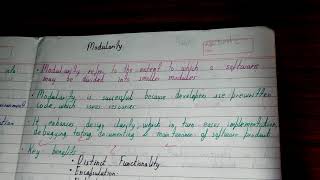 Modularity
into
• Modularity refers to the extent to which a software
may be divided into smaller modules
• Modularity is successful because developers use prewritten
code, which saves resources
• It enhances design clarity, which in turn eases implementation,
debugging, testing, documenting & maintenance of software product.
• Key benefits
- Distinct Functionality
- Encapsulation: